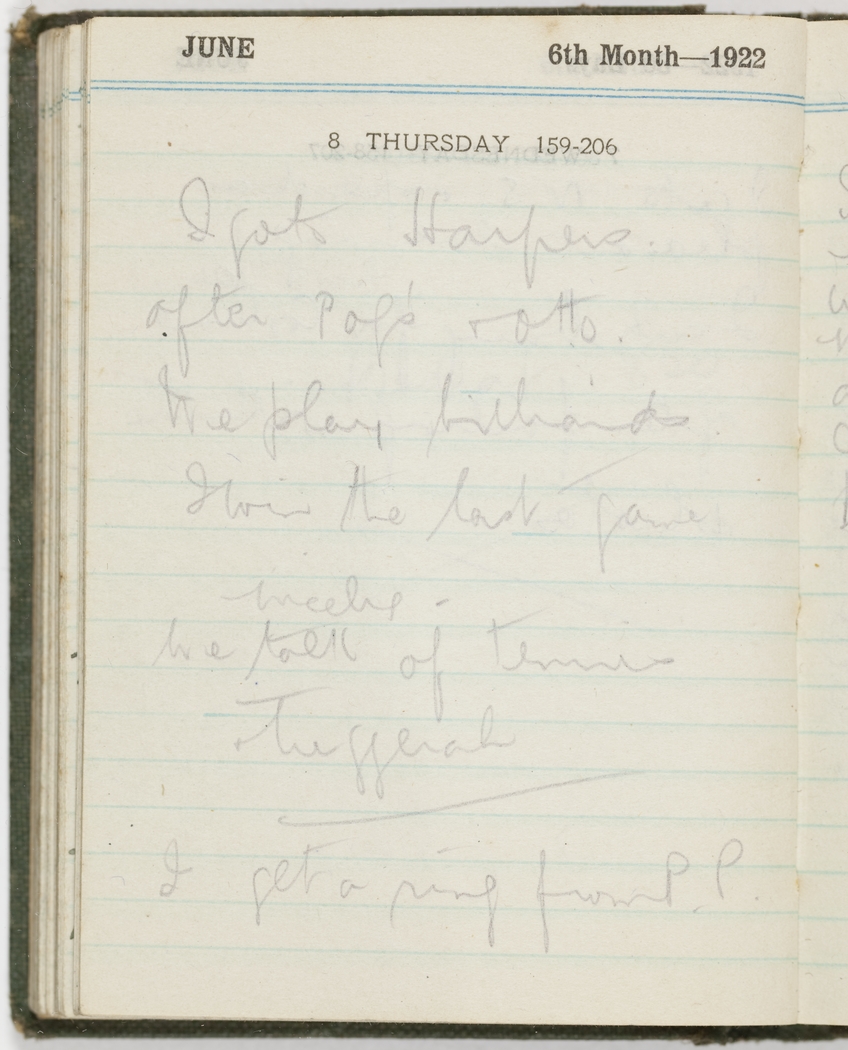 JUNE 6th Month—1922
8 THURSDAY 159-206
I go to Harpers.
after Pop's
We play billiards
I win the last game
nicely -
We talk of tennis
Tuggerah
I get a ring from P.P.